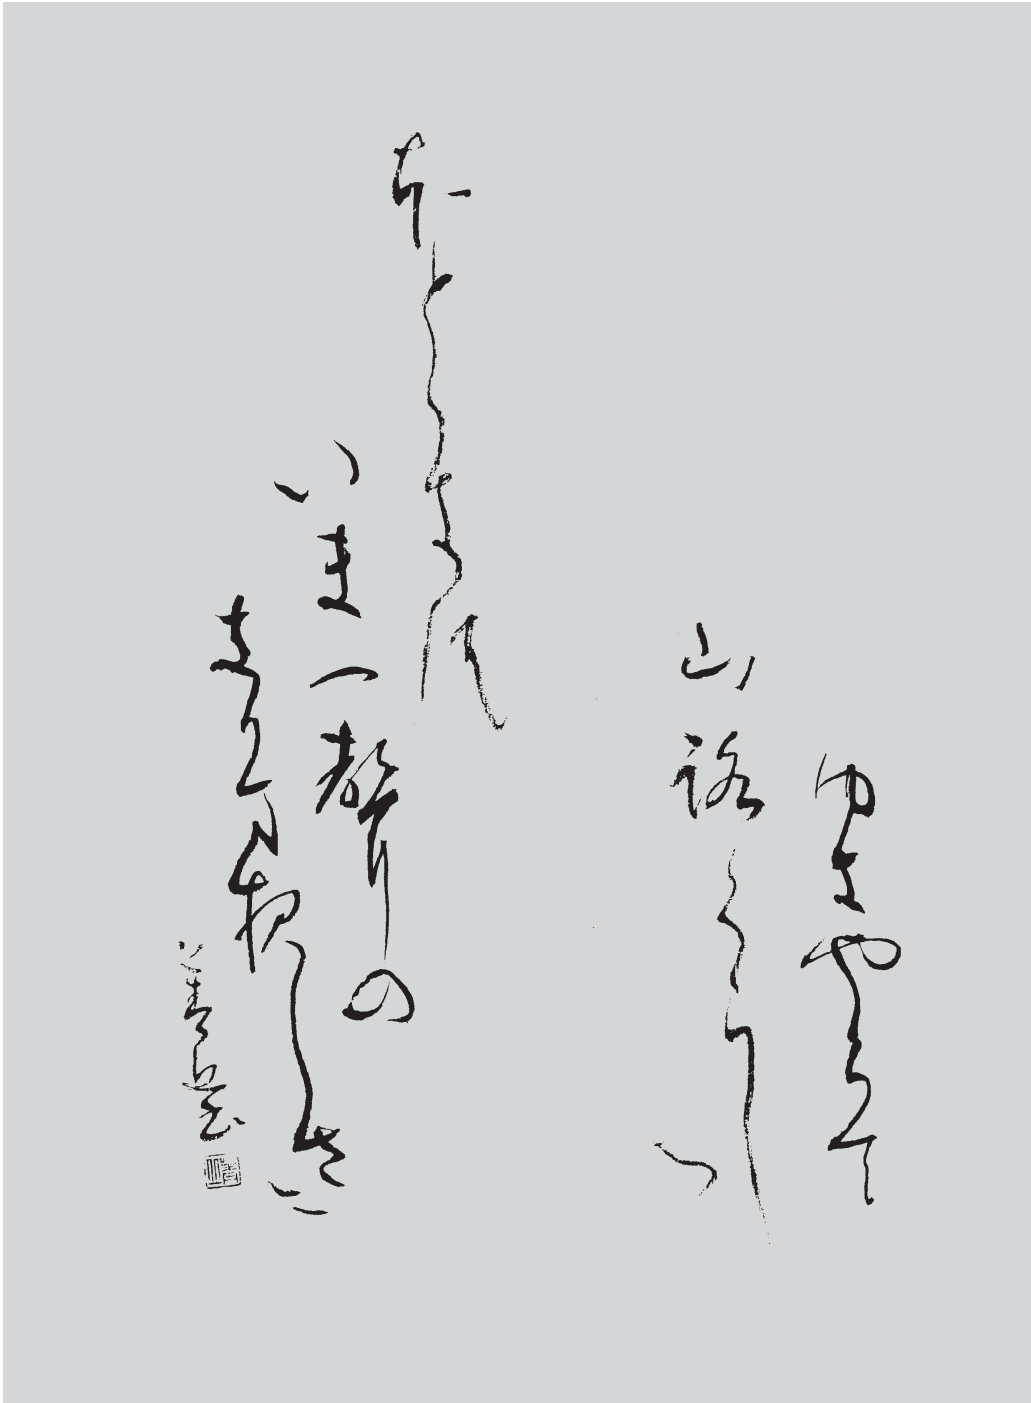 ゆきやらて
山路くらしつ
ほとゝきす
いま一聲の
きかまほしさに